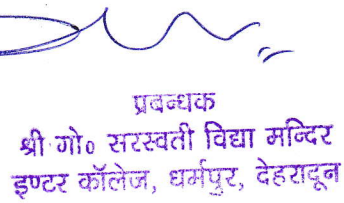 प्रबन्धक
श्री गो० सरस्वती विद्या मन्दिर
इण्टर कॉलेज, धर्मपुर, देहरादून